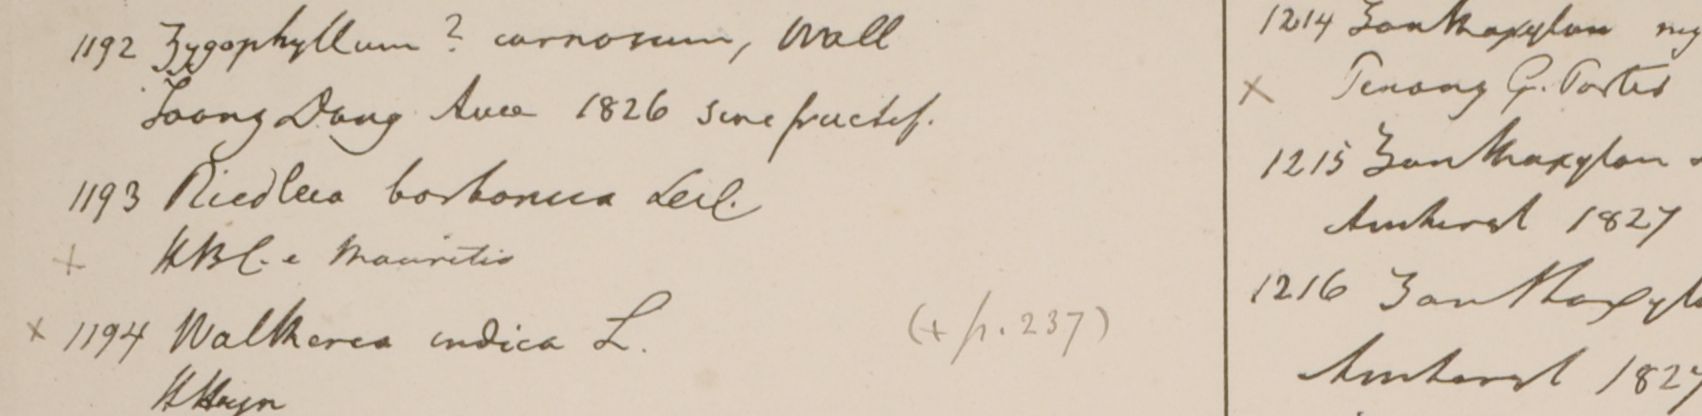 1192 Zygophyllum ? carnosum, Wall
Toong Dong Ava 1826 sine fructif.
1193 Riedleia borbonica
+ HBC. e Mauritio
x 1194 Waltheria indica L. (+ p. 237)
HHeyn
1214 Zanthoxylon
x Penang G. Porter
1215 Zanthoxylon
Amherst 1827
1216 Zanthoxyl
Amherst 1827